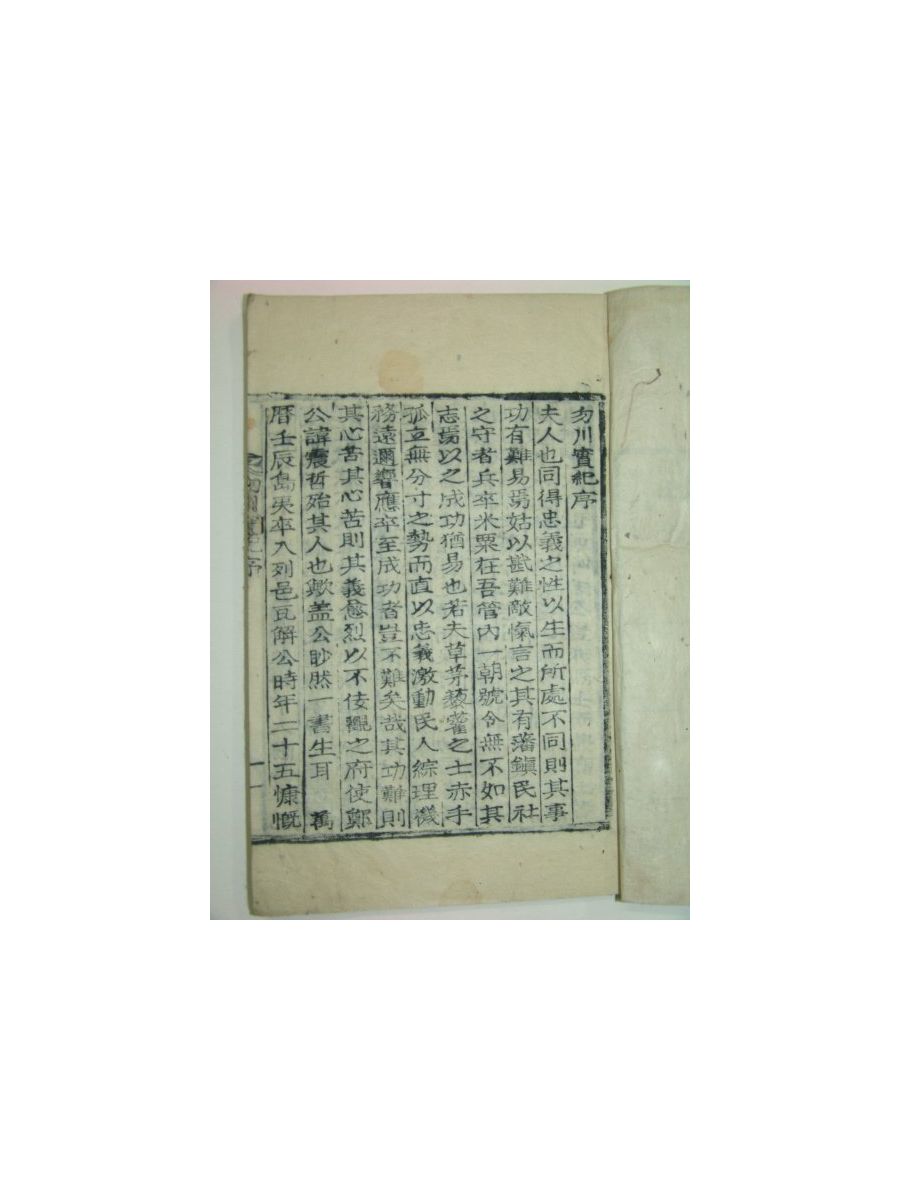 勿川實紀序
夫人也同得忠義之性以生而所處不同則其事
功有難易焉姑以戡難敵愾言之其有藩鎭民社
之守者兵卒米粟在吾管內一朝號令無不如其
志焉以之成功猶易也若夫草茅藜藿之士赤手
孤立無分寸之勢而直以忠義激動民人綜理機
務遠邇響應卒至成功者豈不難矣哉其功難則
其心苦其心苦則其義愈烈以不佞觀之府使鄭
公諱震哲殆其人也歟盖公眇然一書生耳 萬
曆壬辰島夷卒入列邑瓦解公時年二十五慷慨
勿川實紀序 一